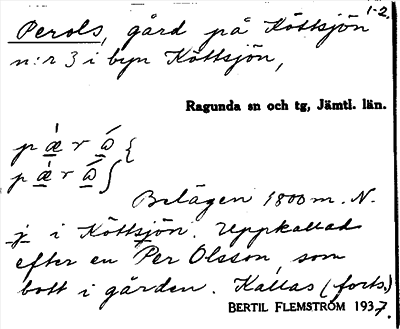 1-2.
Perols, gård på Köttsjön
n:r 3 i byn Köttsjön,
Ragunda sn och tg, Jämtl. län.
Belägen 1800 m. N.
i Köttsjön. Uppkallad
efter en Per Olsson, som
bott i gården. Kallas (forts.)
BERTIL FLEMSTRÖM 1937.